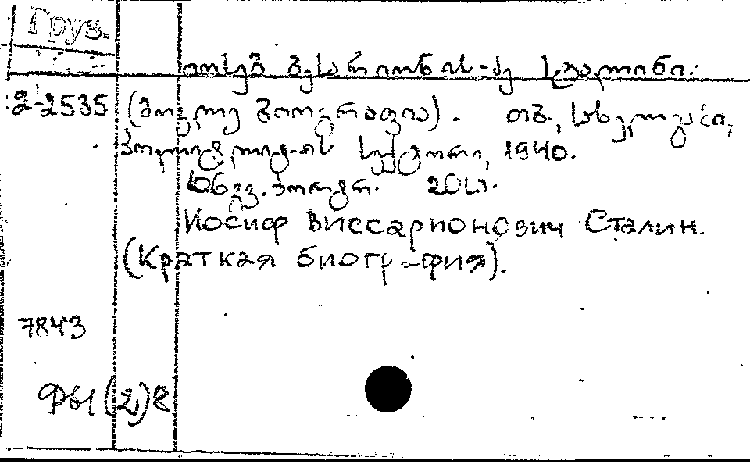 Груз.
იოსებ ბესარიონის-ძე სტალინი.
2-2535 (მოკლე ბიოგრაფია). თბ., სახელგამი,
პოლიტლიტ-ის სექტორი, 1940.
106 გვ. პორტრ. 20სმ.
Иосиф Виссарионович Сталин.
(Краткая биография).
7843
ФЫ(2)8